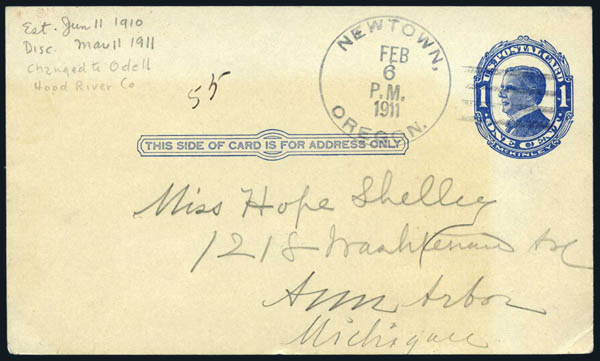 Est. Jun 11 1910
Disc. Mar 11 1911
Changed to Odell
Hood River Co
55
NEWTOWN,
FEB
6
P.M.
1911
OREGON.
U.S. POSTAL CARD
1 1
ONE CENT
McKINLEY
THIS SIDE OF CARD IS FOR ADDRESS ONLY
Miss Hope Shelley
1218 Washtenaw Ave
Ann Arbor
Michigan